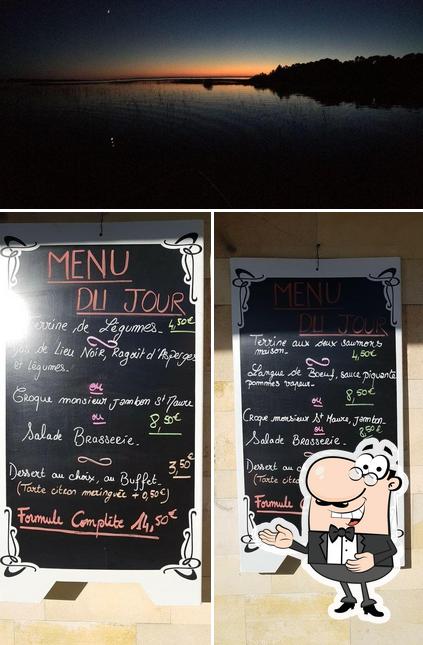 MENU
DU JOUR
Terrine de Légumes. 4,50€
de Lieu Noir, Ragoût d'Asperges
et légumes.
ou
Croque monsieur jambon St Maure
ou 8,50€
Salade Brasserie.
3,50€
Dessert au choix, au Buffet.
(Tarte citron meringuée + 0,50€)
Formule Complète 14,50€
MENU
DU JOUR
Terrine aux deux saumons
maison. 4,50€
Langue de Boeuf, sauce piquante
pommes vapeur.
ou 8,50€
Croque monsieur St Maure, jambon.
ou 8,50€
Salade Brasserie.
Dessert au c
(Tarte citro
Formule